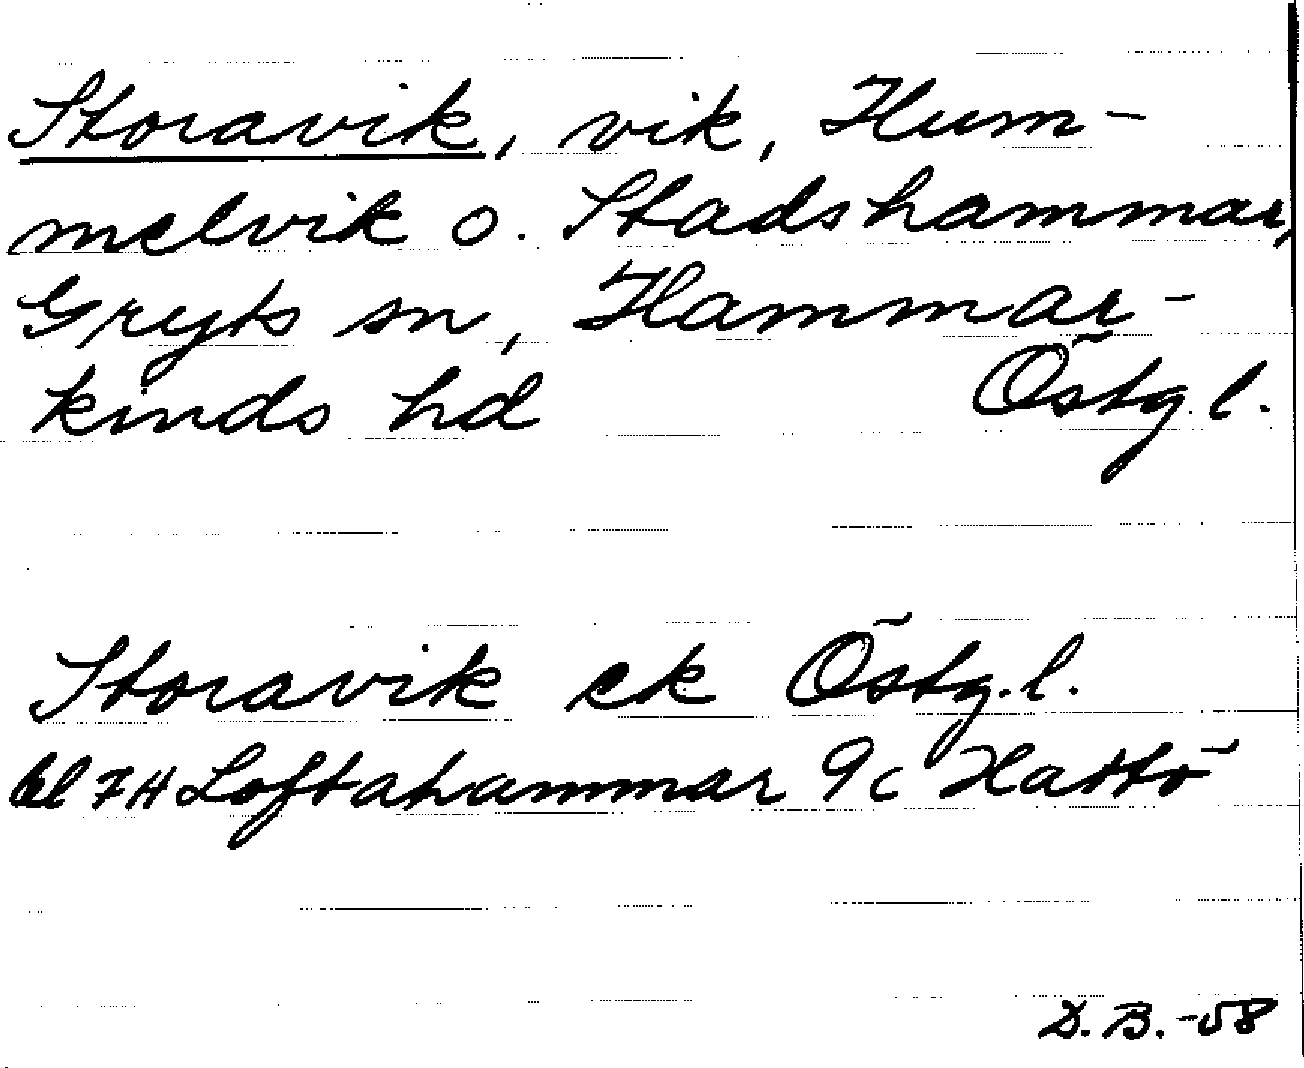 Storavik, vik, Hum-
melvik o. Stadshammar,
Gryts sn, Hammar-
kinds hd Östg. l.
Storavik ek Östg. l.
bl 7H Loftahammar 9c Hattö
D. B. -58